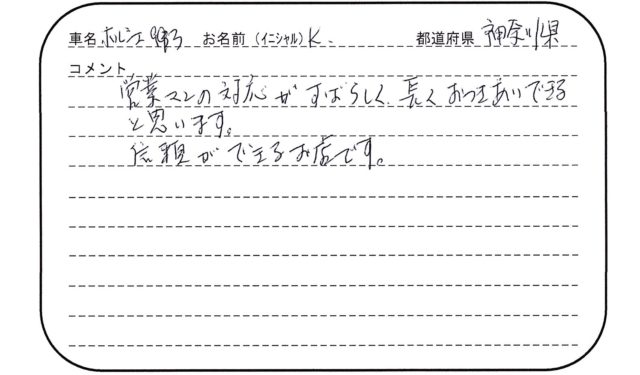 車名 ポルシェ 993 お名前(イニシャル) K. 都道府県 神奈川県
コメント
営業マンの対応がすばらしく、長くおつきあいできる
と思います。
信頼ができるお店です。